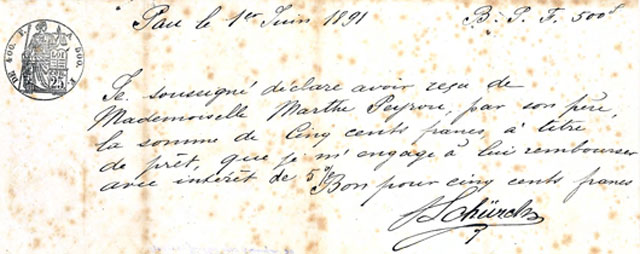 Pau le 1er Juin 1891 B. P. F. 500f
DE 400 F. A 500. F.
25c
Je soussigné déclare avoir reçu de
Mademoiselle Marthe Peyrou, par son père,
la somme de Cinq cents francs, à titre
de prêt, que je m'engage à lui rembourser
avec intérêt de 5 % Bon pour cinq cents francs
Schürch